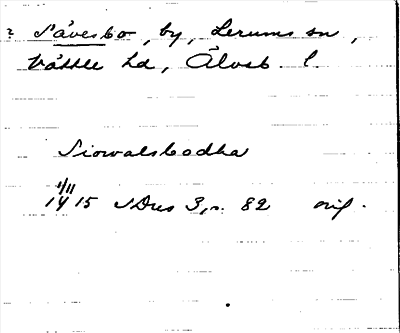 ? Sävesbo, by, Lerums sn,
Vättle hd, Älvsb. l.
Siowalsbodha
1/11
1415 SDns 3, s. 82 orig.